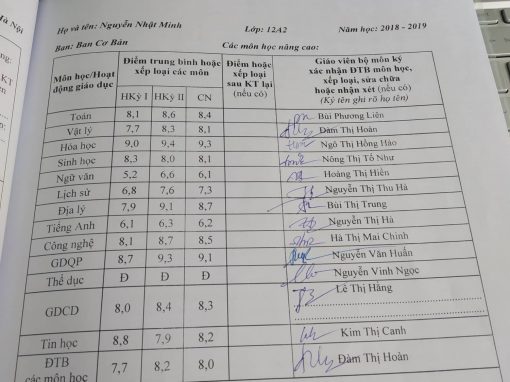 Hà Nội
Họ và tên: Nguyễn Nhật Minh Lớp: 12A2 Năm học: 2018 - 2019
Ban: Ban Cơ Bản Các môn học nâng cao:
Môn học/Hoạt động giáo dục
Điểm trung bình hoặc xếp loại các môn
HKỳ I HKỳ II CN
Điểm hoặc xếp loại sau KT lại (nếu có)
Giáo viên bộ môn ký xác nhận ĐTB môn học, xếp loại, sửa chữa hoặc nhận xét (nếu có)
(Ký tên ghi rõ họ tên)
Toán 8,1 8,6 8,4 Bùi Phương Liên
Vật lý 7,7 8,3 8,1 Đàm Thị Hoàn
Hóa học 9,0 9,4 9,3 Ngô Thị Hồng Hảo
Sinh học 8,3 8,0 8,1 Nông Thị Tố Như
Ngữ văn 5,2 6,6 6,1 Hoàng Thị Hiền
Lịch sử 6,8 7,6 7,3 Nguyễn Thị Thu Hà
Địa lý 7,9 9,1 8,7 Bùi Thị Trung
Tiếng Anh 6,1 6,3 6,2 Nguyễn Thị Hà
Công nghệ 8,1 8,7 8,5 Hà Thị Mai Chinh
GDQP 8,7 9,3 9,1 Nguyễn Văn Huấn
Thể dục Đ Đ Đ Nguyễn Vinh Ngọc
GDCD 8,0 8,4 8,3 Lê Thị Hằng
Tin học 8,8 7,9 8,2 Kim Thị Canh
ĐTB các môn học 7,7 8,2 8,0 Đàm Thị Hoàn